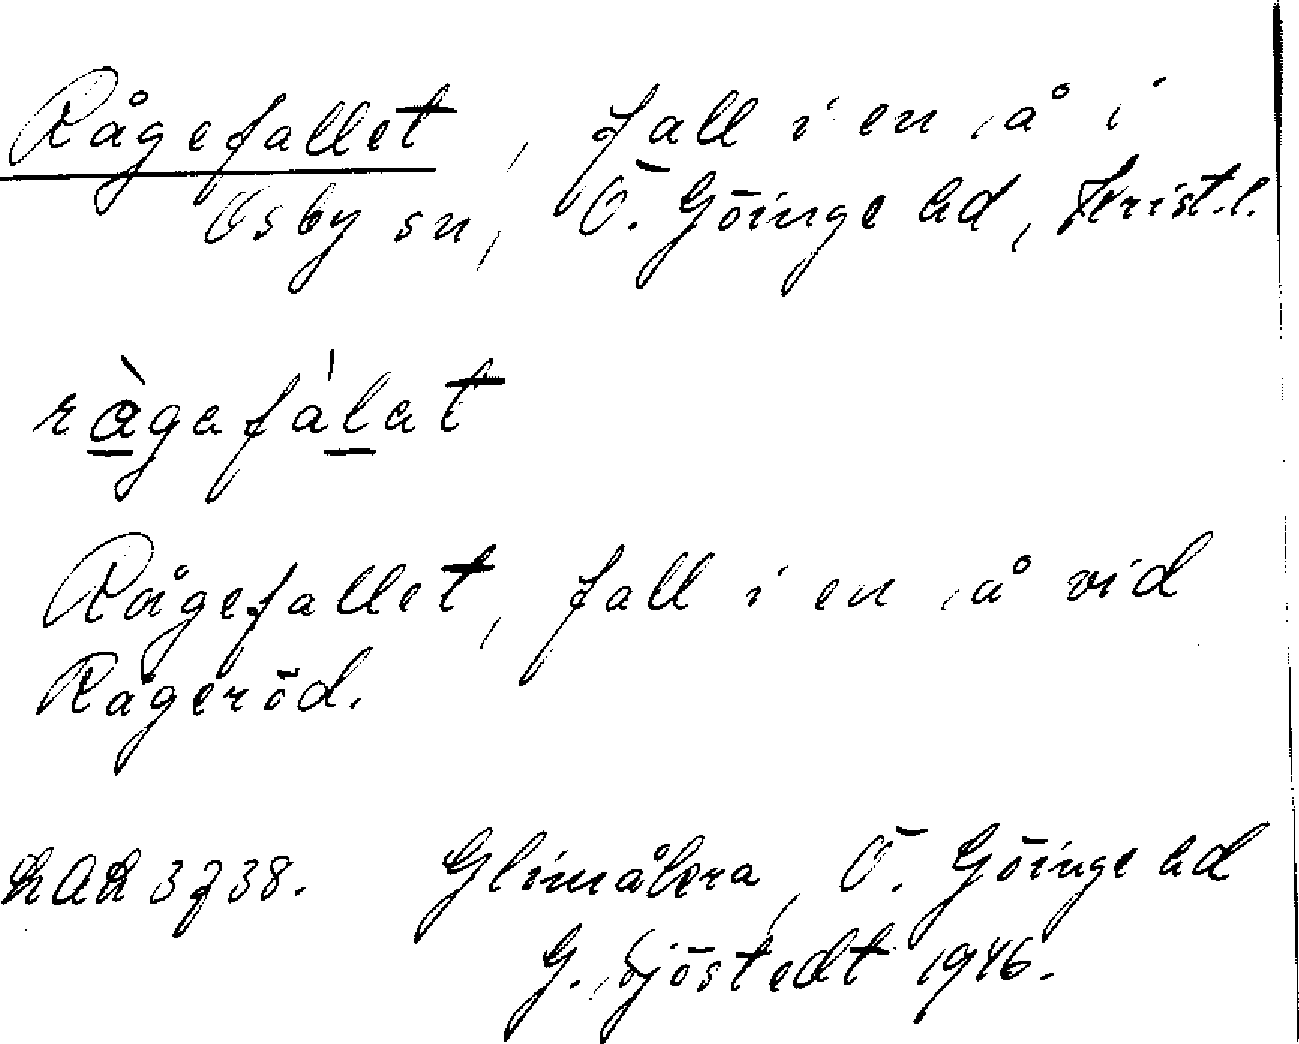 Rågefallet, fall i en å i
Osby sn, Ö. Göinge hd, Krist.l.
rågefàlat
Rågefallet, fall i en å vid
Rågeröd.
Glimåkra, Ö. Göinge hd
G. Sjöstedt 1946.